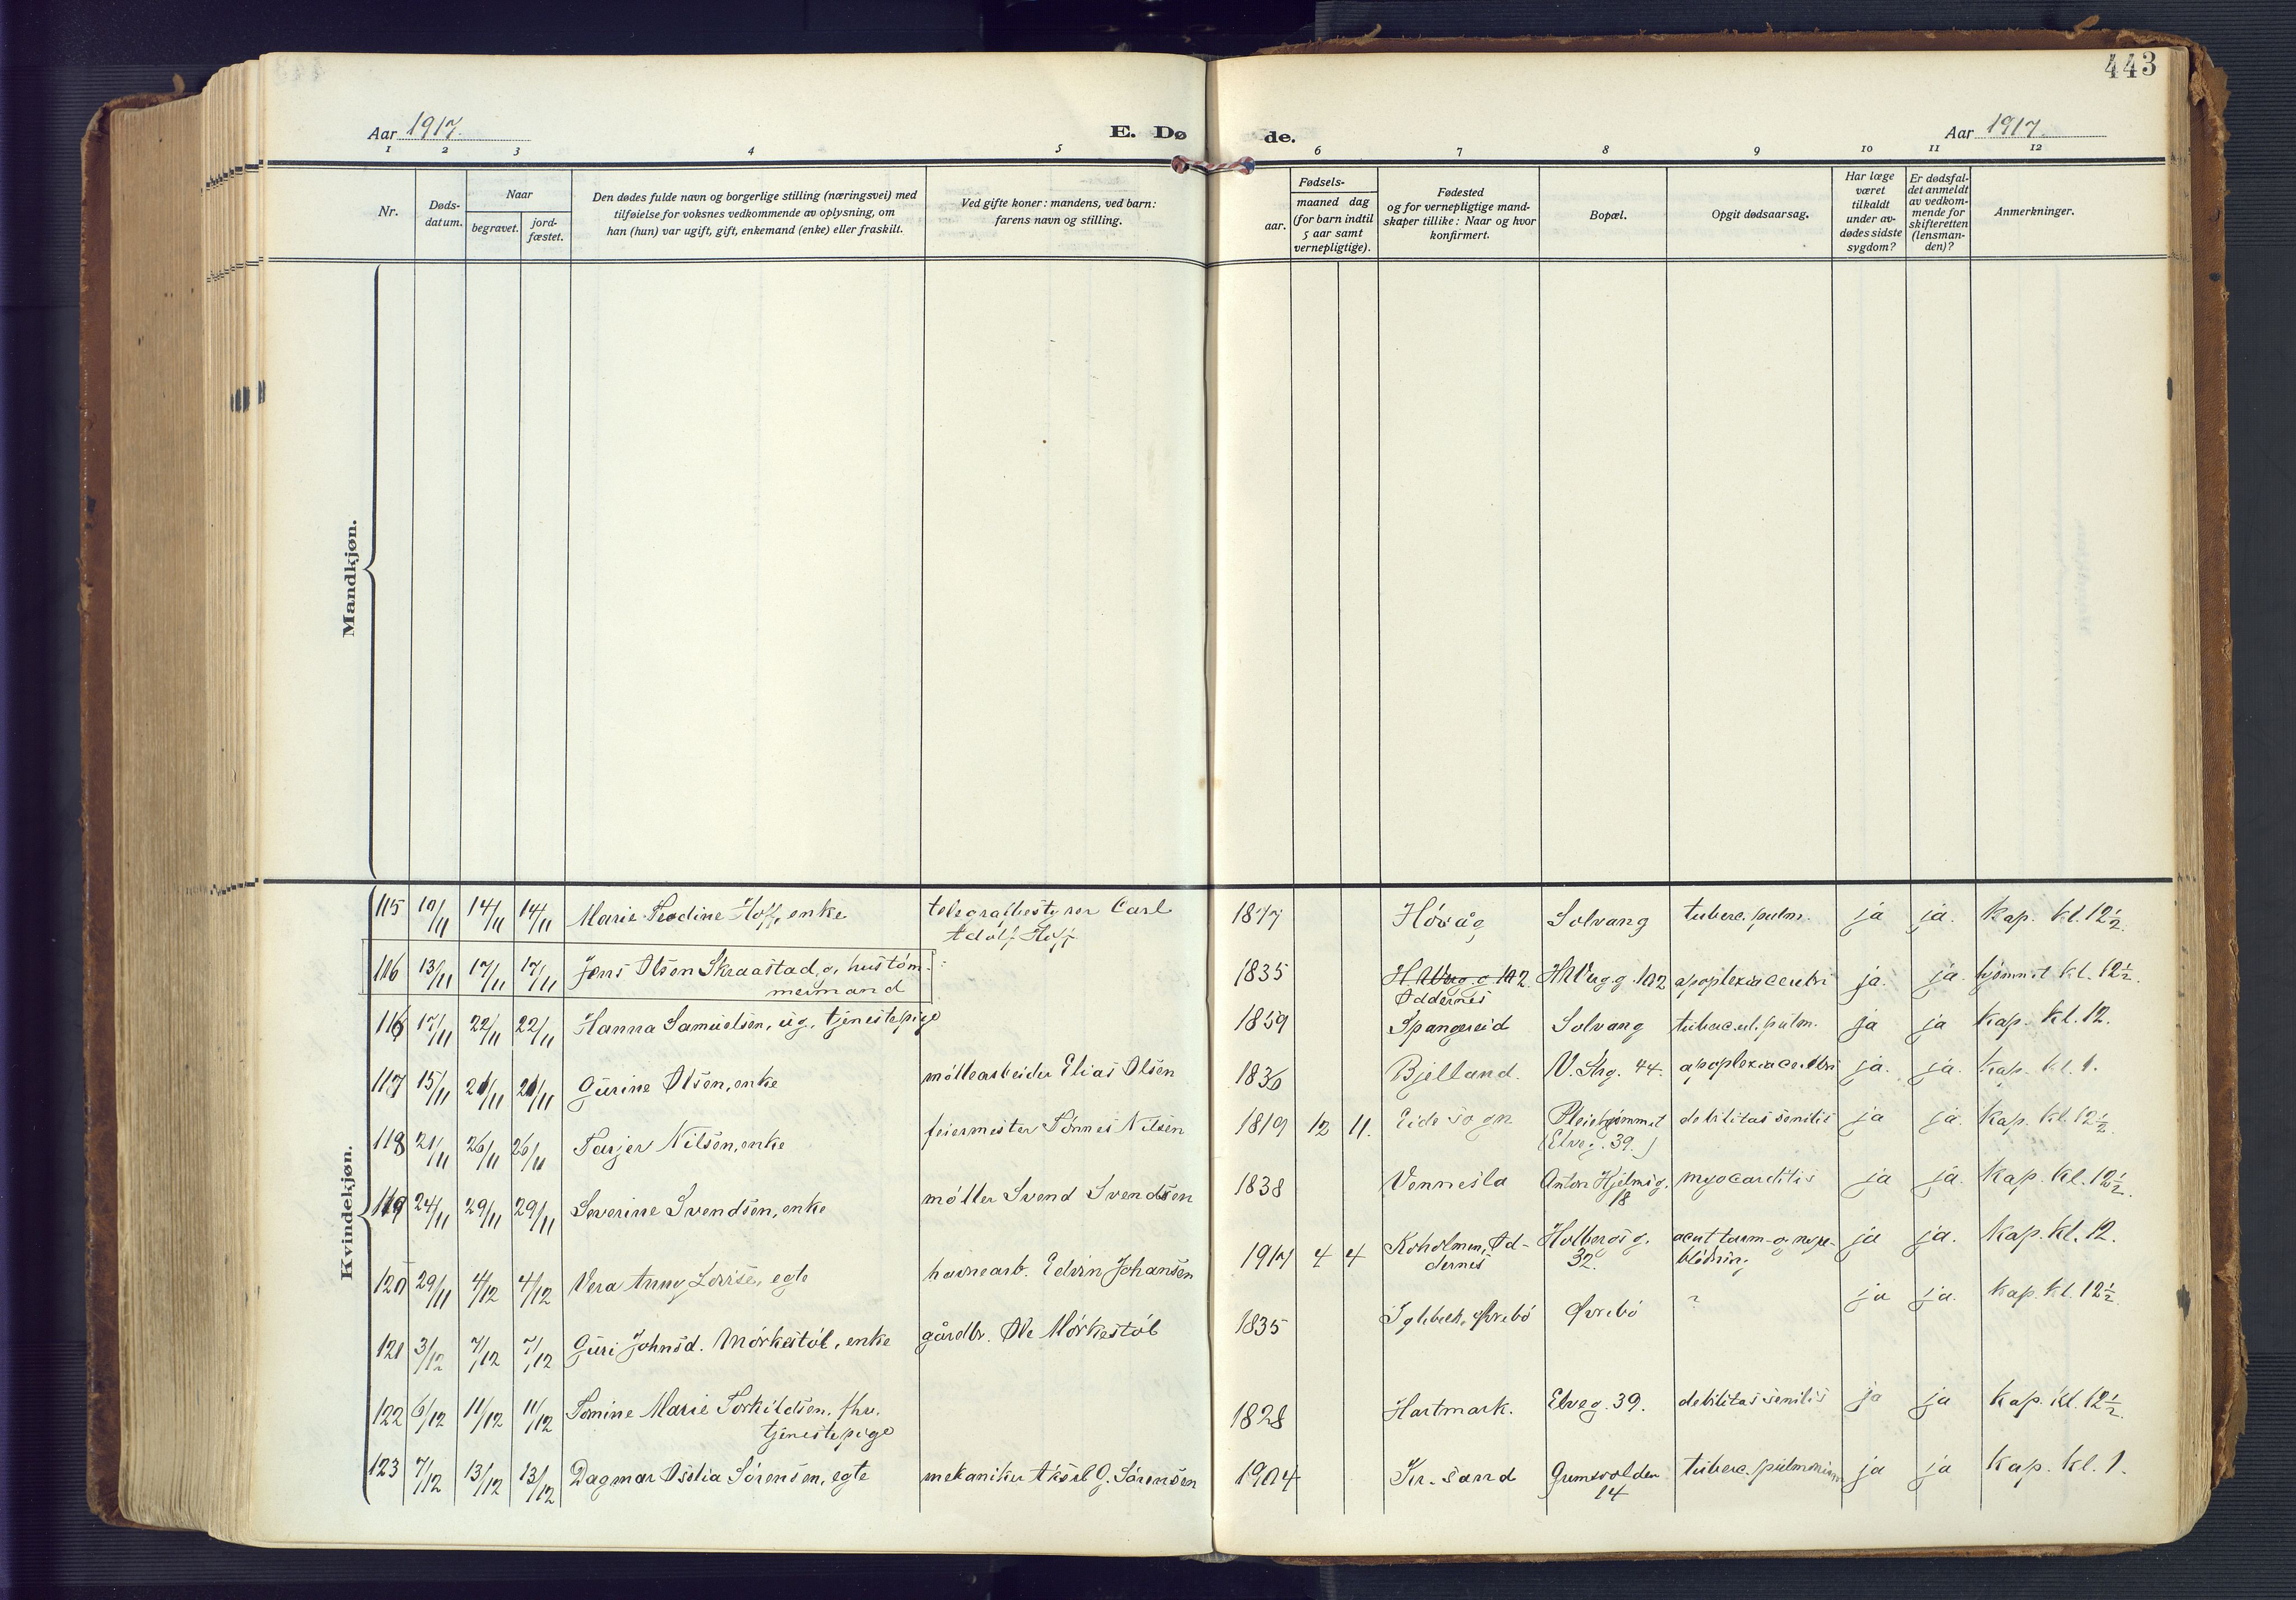 443
Aar 1917.
E. Dø de.
Aar 1917.
1 2 3 4 5 6 7 8 9 10 11 12
Nr.
Døds-
datum.
Naar
begravet.
jord-
fæstet.
Den dødes fulde navn og borgerlige stilling (næringsvei) med
tilføielse for voksnes vedkommende av oplysning, om
han (hun) var ugift, gift, enkemand (enke) eller fraskilt.
Ved gifte koner: mandens, ved barn:
farens navn og stilling.
Fødsels-
aar.
maaned dag
(for barn indtil
5 aar samt
vernepligtige).
Fødested
og for vernepligtige mand-
skaper tillike: Naar og hvor
konfirmert.
Bopæl.
Opgit dødsaarsag.
Har læge
været
tilkaldt
under av-
dødes sidste
sygdom?
Er dødsfal-
det anmeldt
av vedkom-
mende for
skifteretten
(lensman-
den)?
Anmerkninger.
Mandkjøn.
Kvindekjøn.
115 10/11 14/11 14/11 Marie Teodine Hoff, enke telegrafbestyrer Carl 1877 Høvåg Solvang tuberc. pulm. ja ja. Kap. kl. 12½.
Adolf Hoff
116 13/11 17/11 17/11 Jens Olsen Skraastad, g, hustøm- 1835 H. Werg. g. 102 H. Werg. g. 102 apoplexia cerebri ja. ja. hjemmet kl. 12½
mermand Oddernes
116 17/11 22/11 22/11 Hanna Samuelsen, ug., tjenestepige 1859 Spangereid Solvang tubercul. pulm. ja ja Kap. kl. 12.
117 15/11 21/11 21/11 Gurine Olsen, enke møllearbeider Elias Olsen 1836 Bjelland. V. Strg. 44. apoplexia cerebri ja. ja. Kap. kl. 1.
118 21/11 26/11 26/11 Tarjer Nilsen, enke feiermester Tønnes Nilsen 1819 12 11. Eide sogn Pleiehjemmet debilitas senilis ja ja. Kap. kl. 12½.
(Elveg. 39.)
119 24/11 29/11 29/11 Severine Svendsen, enke møller Svend Svendsen 1838 Vennesla Anton Hjelmsg. myocarditis ja ja. Kap. kl. 12½.
18
120 29/11 4/12 4/12 Vera Anny Lovise, egte havnearb. Edvin Johansen 1917 4 4 Koholmen, Od- Holbergsg. acut tarm- og nyre- ja ja. Kap. kl. 12.
dernes 32. blødning
121 3/12 7/12 7/12 Guri Johnsd. Mørkestøl, enke gårdbr. Ole Mørkestøl 1835 Iglebæk, Øvrebø Øvrebø ? ja ja. Kap. kl. 12½
122 6/12 11/12 11/12 Tomine Marie Torkildsen, fhv. 1828 Hartmark. Elveg. 39. debilitas senilis ja ja Kap. kl. 12½.
tjenestepige
123 7/12 13/12 13/12 Dagmar Oselia Sørensen, egte mekaniker Aksel G. Sørensen 1904 Kr.sand Grimsvolden tuberc. pulmonium ja ja Kap. kl. 1.
14